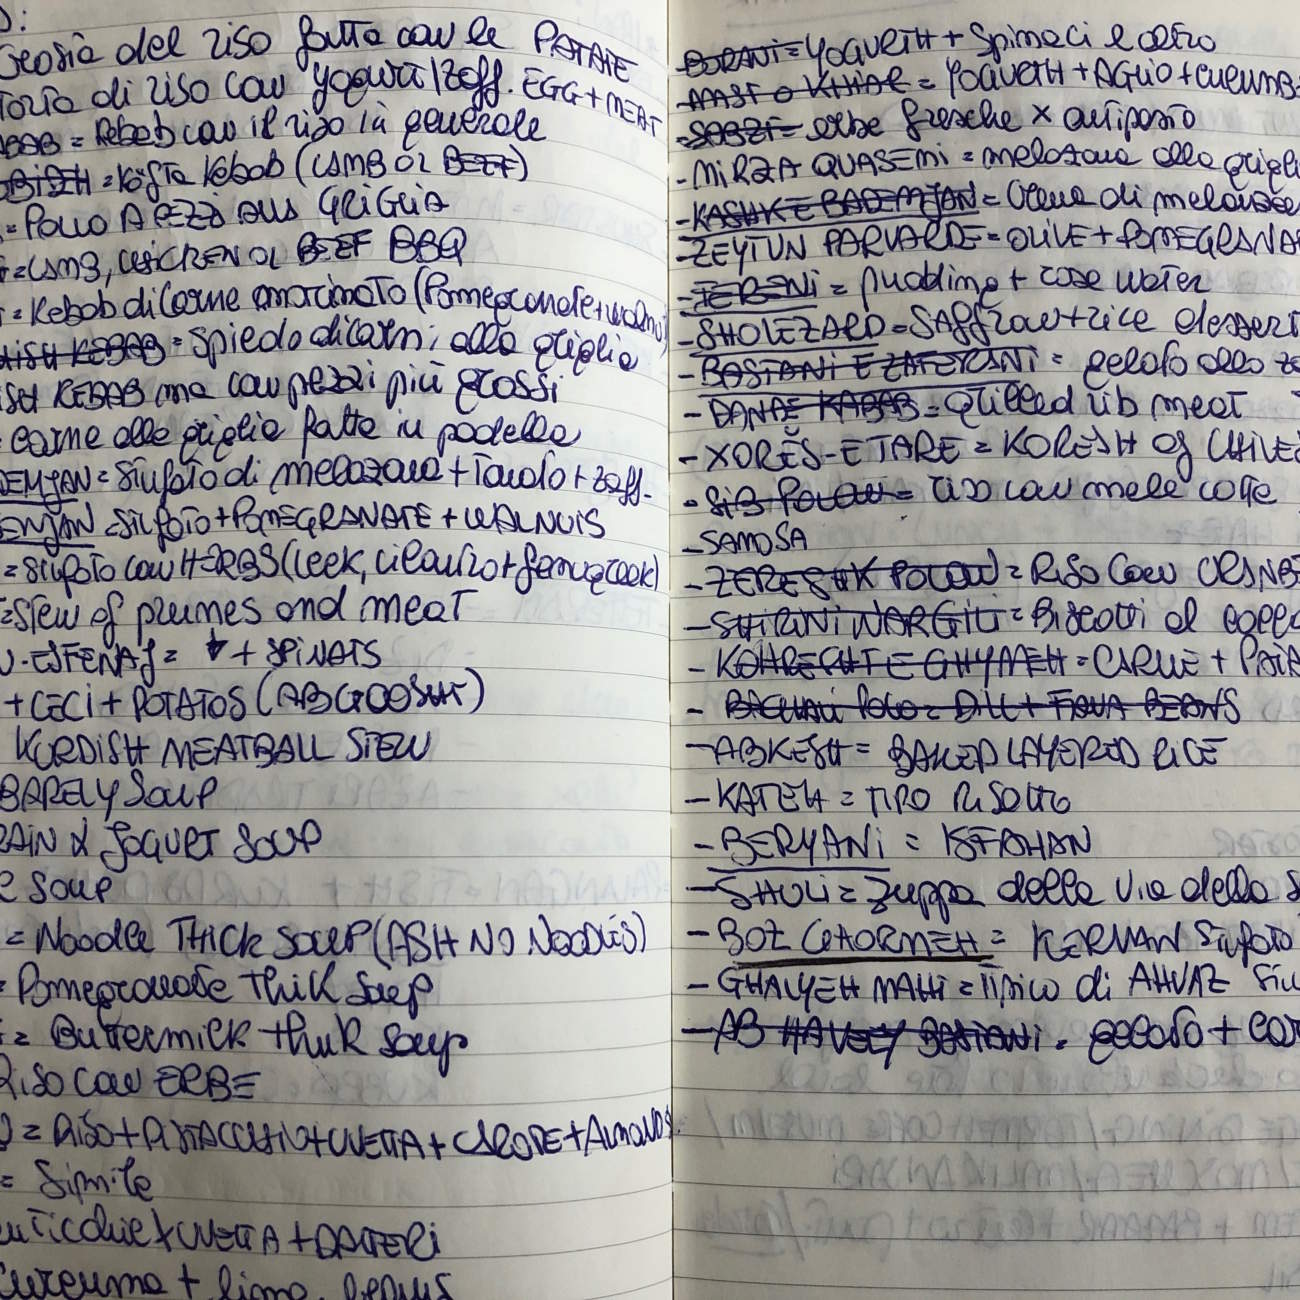 del riso fatta con le PATATE
Torta di riso con yogurt/zaff. EGG + MEAT
= Kebab con il riso in generale
= Köfta Kebab (LAMB or BEEF)
= POLLO A PEZZI ALLA GRIGLIA
= LAMB, CHICKEN or BEEF BBQ
= Kebab di carne marinato (Pomegranate + walnu
KEBAB = Spiedo di carni alla griglia
KEBAB ma con pezzi più grossi
carne alla griglia fatta in padella
DEMJAN = Stufato di melanzana + + zaff.
EMJAN = Stufato + POMEGRANATE + WALNUTS
= Stufato con HERBS (leek, cilantro + fenugreek)
= Stew of prunes and meat
ESFENAJ = + SPINATS
+ CECI + POTATOS (ABGOOSHT)
KURDISH MEATBALL STEW
BARELY SOUP
& YOGURT SOUP
SOUP
= NOODLE THICK SOUP (ASH NO NOODLES)
= Pomegranate Thick Soup
= Buttermilk thick soup
RISO CON ERBE
= RISO + PISTACCHIO + UVETTA + CAROTE + ALMONDS
= Simile
+ UVETTA + DATTERI
Curcuma + lima
BORANI = YOGURTH + Spinaci e altro
- MAST O KHIAR = YOGURTH + AGLIO + CUCUMB
- SABZI = erbe fresche x antipasto
- MIRZA QUASEMI = melanzana alla grigli
- KASHK E BADEMJAN = Crema di melanza
- ZEYTUN PARVARDE = OLIVE + POMEGRANA
- FERENI = pudding + rose water
- SHOLEZARD = Saffron + rice dessert
- BASTANI E ZAFERANI = gelato allo za
- DANDE KABAB = Grilled rib meat
- XOREŠ-E TARE = KORESH of CHIVES
- SIB POLOW = riso con mele cotte
- SAMOSA
- ZERESHK POLOW = RISO CON CRANB
- SHIRINI NARGILI = Biscotti al cocco
- KOHRECHT E GHYMEH = CARNE + PATA
- BAGHALI POLO = DILL + FAVA BEANS
- ABKESH = BAKED LAYERED RICE
- KATEH = TIPO RISOTTO
- BERYANI = ISFAHAN
- SHOLI = Zuppa della via della S
- BOZ GHORMEH = KERMAN Stufato
- GHALYEH MAHI = Tipico di AHVAZ Stu
- AB HAVEY BASTANI = gelato + car